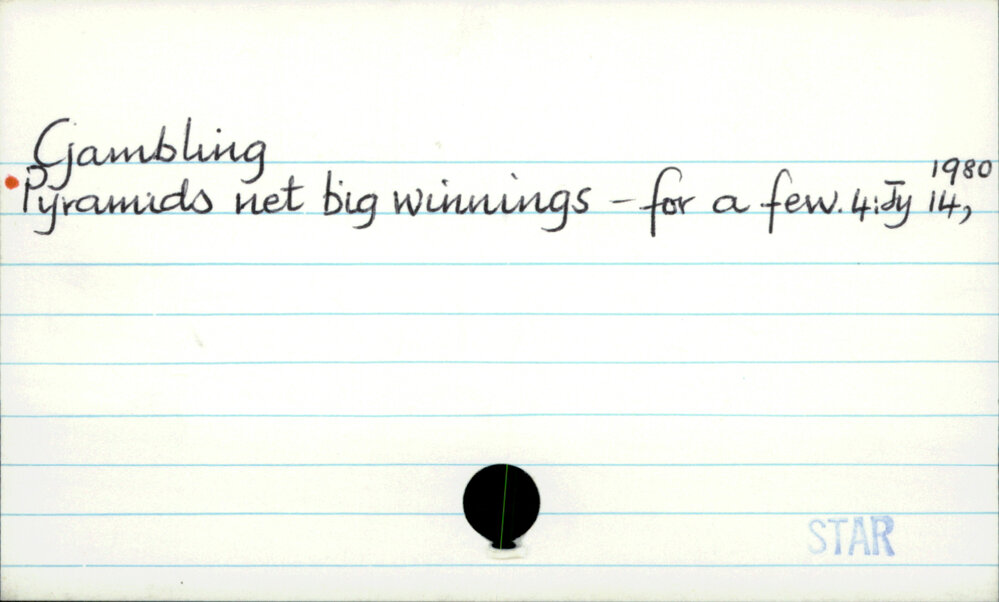 Gambling
Pyramids net big winnings – for a few. 4:Jy 14, 1980
STAR